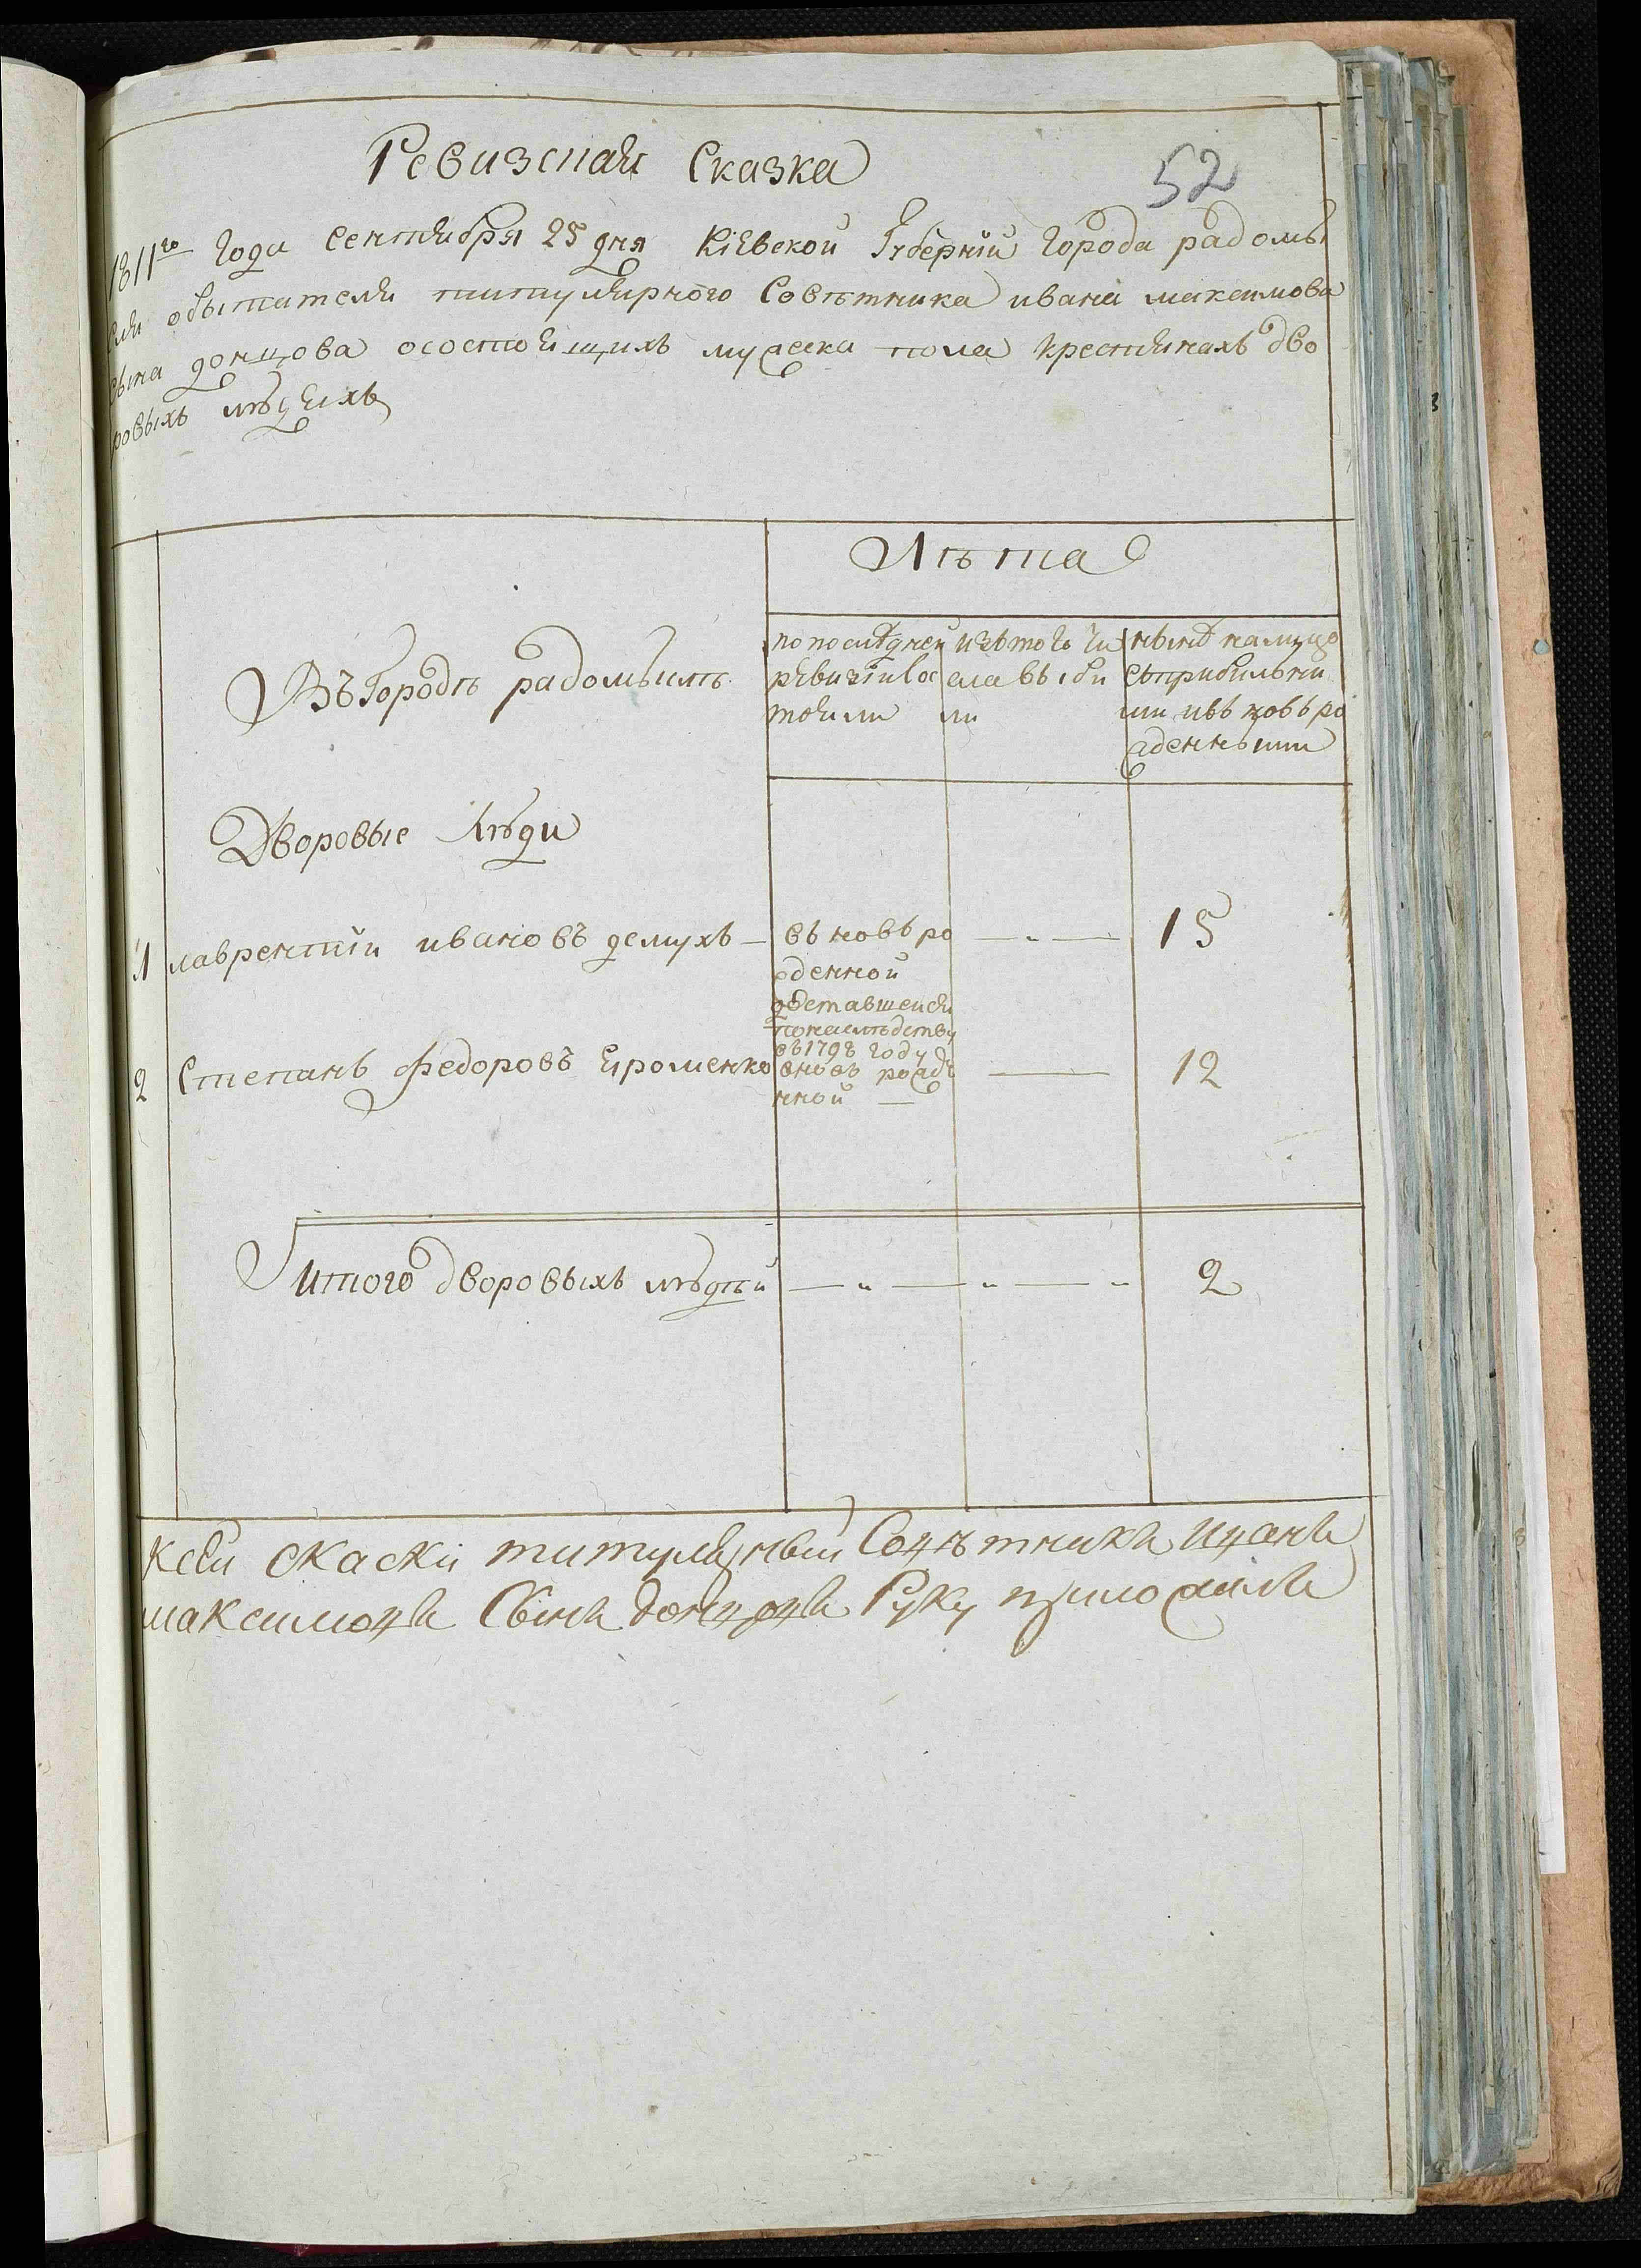 Ревизская Сказка
52
1811го Года сентября 25 дня Кіевской Губерніи Города радомы
сля обытателя титулярного Советника ивана максимова
сына донцова осостоящихъ мужска пола крестянахъ дво
ровыхъ людяхъ
Лѣта
Въ Городѣ радомыслѣ
по последней
ревизіи сос
тояли
изъ того чи
сла выбы
ли
ныне налицо
съприбылы
ми ивъ новь ро
жденными
Дворовые Люди
1 лаврентий ивановъ демухъ —
въ новь ро
жденной
— „ —
15
2 Степанъ федоровъ Яроменко
доставшейся
понаследству
въ 1798 году
вновь рожде
нной —
—
12
итого дворовыхъ людей — „ — „ — „ 2
Ксей скаски титулярный Советникъ Иванъ
максимовъ Сынъ донцовъ Руку приложилъ